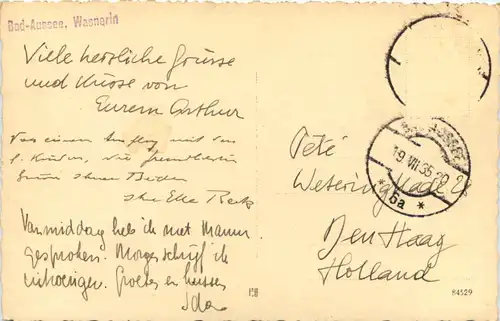 Bad-Aussee, Wasnerin
Viele herzliche Grüsse
und Küsse von
Eurem Arthur
Von einem Ausflug mit den
l. Kindern, die
Ihnen Beiden
Ihre Else
Vanmiddag heb ik met Mamm
gesproken. Morgen schrijf ik
uitvoeriger. Groeten en kussen
Ida
AUSSEE
19 VII 35 20
* 6a *
Peté
Wetering Kade 2
Den Haag
Holland
84529